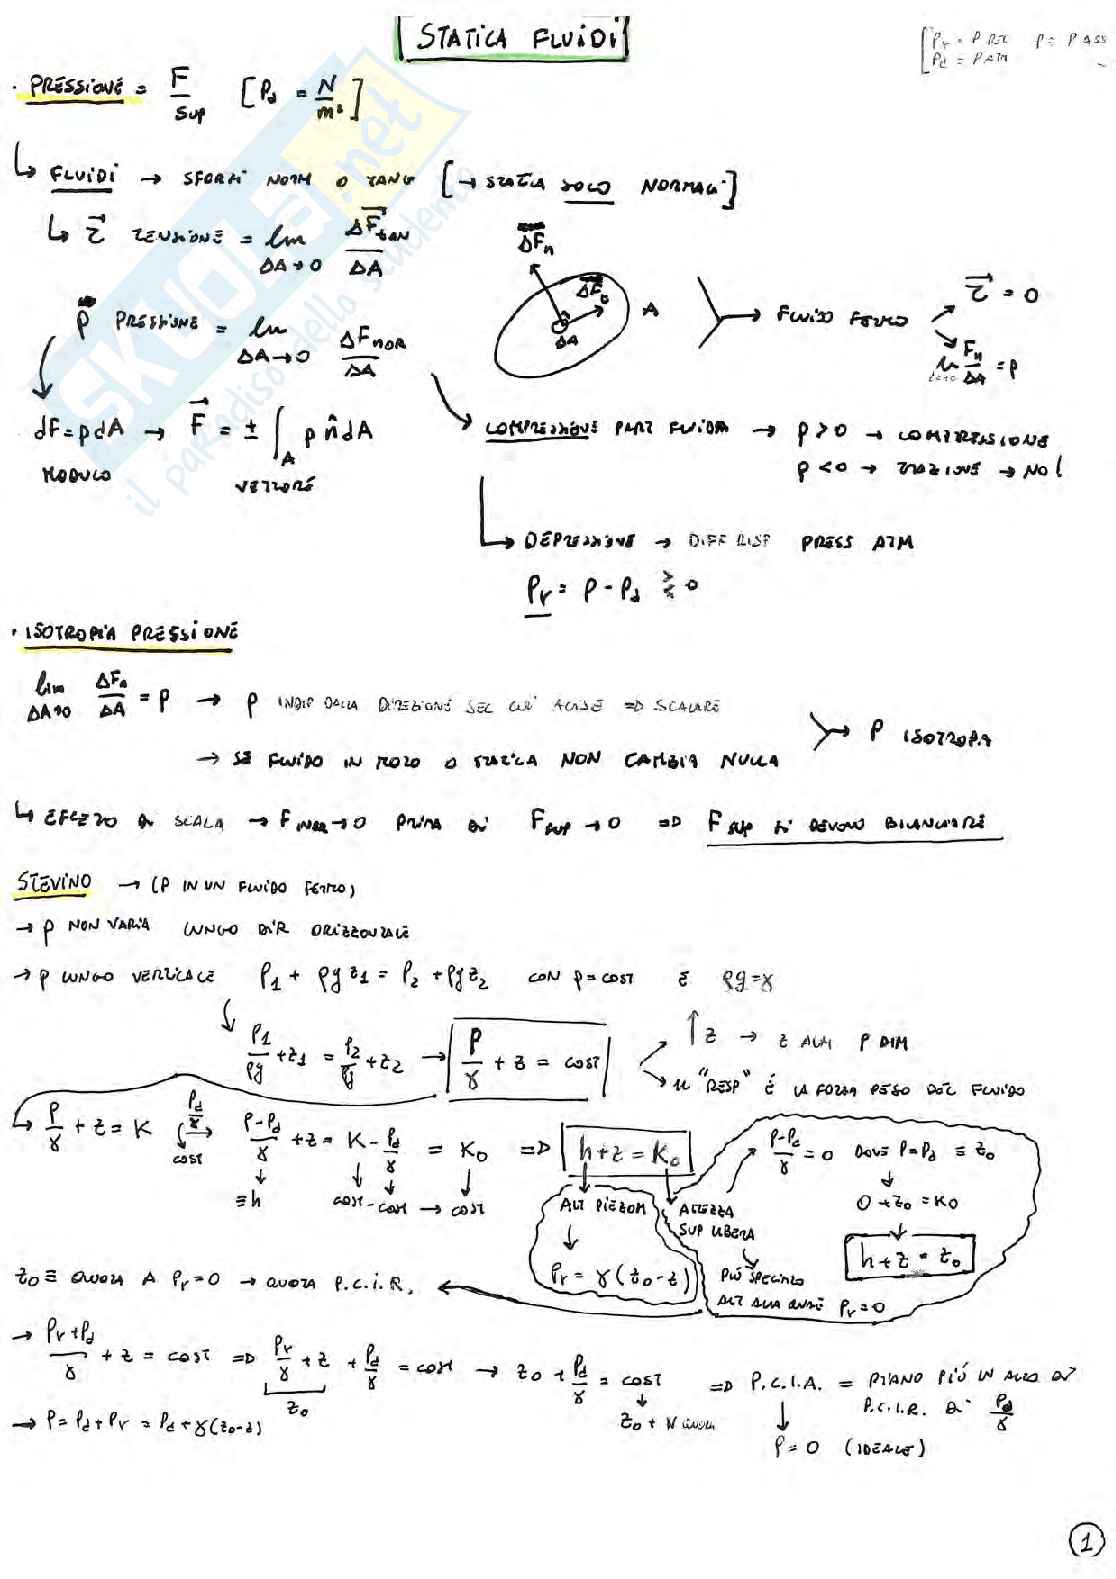 STATICA FLUIDI
[Pr = P REL P = P ASS
Pa = P ATM
· PRESSIONE = F/SUP [Pa = N/m²]
↳ FLUIDI → SFORZI NORM O TANG [→ STATICA SOLO NORMALI]
↳ τ TENSIONE = lim ΔA→0 ΔFtan/ΔA
ΔFn ΔFt A ΔA
→ FLUIDO FERMO τ = 0
lim Fn/ΔA = P
P PRESSIONE = lim ΔA→0 ΔFNOR/ΔA
dF = p dA → F = ± ∫A p n̂ dA
MODULO VETTORE
→ COMPRESSIONE PART FLUIDA → P > 0 → COMPRESSIONE
P < 0 → TRAZIONE → NO!
→ DEPRESSIONE → DIFF RISP PRESS ATM
Pr = P - Pa ≷ 0
· ISOTROPIA PRESSIONE
lim ΔA→0 ΔFn/ΔA = P → P INDIP DALLA DIREZIONE SEL CUI AGISCE => SCALARE
→ P ISOTROPA
→ SE FLUIDO IN MOTO O STATICA NON CAMBIA NULLA
↳ EFFETTO DI SCALA → F → 0 PRIMA DI FSUP → 0 => FSUP SI DEVONO BILANCIARE
STEVINO → (P IN UN FLUIDO FERMO)
→ P NON VARIA LUNGO DIR ORIZZONTALE
→ P LUNGO VERTICALE P1 + ρgz1 = P2 + ρgz2 CON ρ = COST E ρg = γ
P1/ρg + z1 = P2/ρg + z2 → P/γ + z = COST
↑z → z AUM P DIM
→ IL "RESP" È LA FORZA PESO DEL FLUIDO
→ P/γ + z = K Pa/γ COST → P-Pa/γ + z = K - Pa/γ = K0 => h + z = K0
≡ h COST - COST → COST
ALT PIEZOM
Pr = γ(z0 - z)
ALTEZZA SUP LIBERA
PIÙ SPECIFICO
ALT ALLA QUALE Pr = 0
P-Pa/γ = 0 DOVE P = Pa ≡ z0
0 + z0 = K0
h + z = z0
z0 ≡ QUOTA A Pr = 0 → QUOTA P.C.I.R.
→ Pr+Pa/γ + z = COST => Pr/γ + z + Pa/γ = COST → z0 + Pa/γ = COST => P.C.I.A. = PIANO PIÙ IN ALTO DI
P.C.I.R. DI Pa/γ
z0
z0 + QUOTA
→ P = Pa + Pr = Pa + γ(z0 - z)
P = 0 (IDEALE)
1
SKUOLA.net
il paradiso dello studente